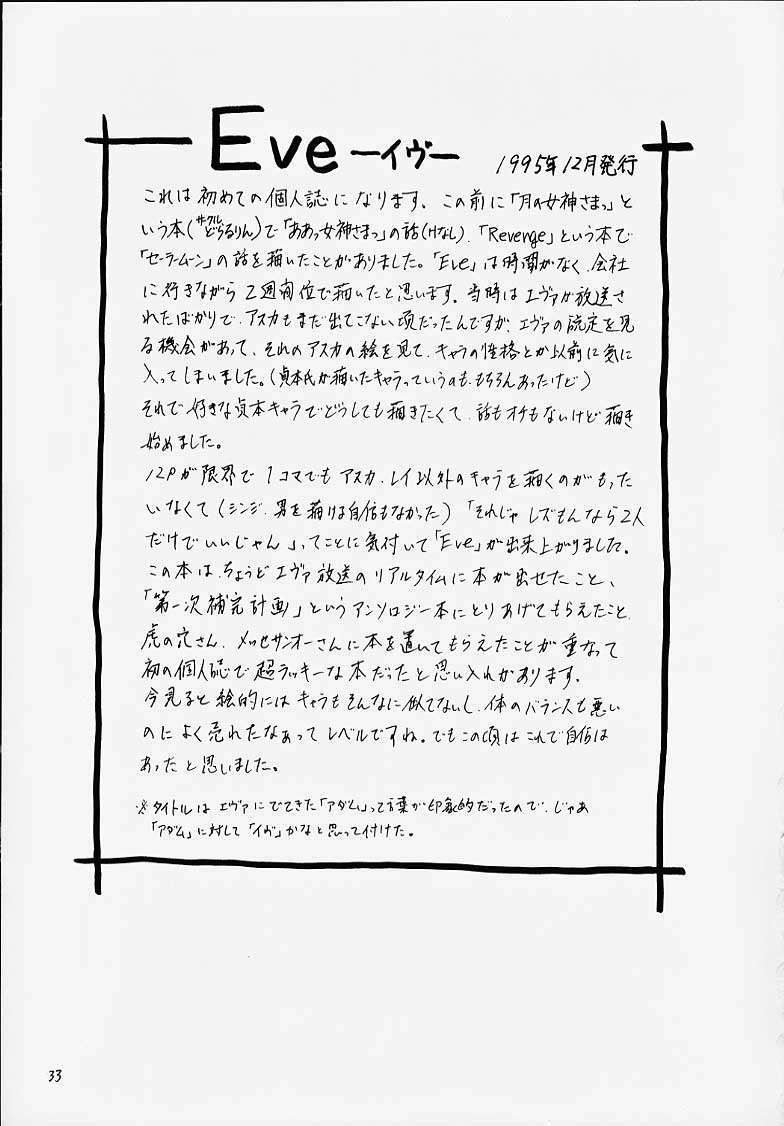 Eve ーイヴー 1995年12月発行
これは初めての個人誌になります、この前に「月の女神さまっ」と
いう本(サークルどちらりん)で「ああっ女神さまっ」の話(Hなし)、「Revenge」という本で
「セーラームーン」の話を描いたことがありました。「Eve」は時間がなく、会社
に行きながら2週間位で描いたと思います。当時はエヴァが放送さ
れたばかりで、アスカもまだ出てこない頃だったんですが、エヴァの設定を見
る機会があって、それのアスカの絵を見て、キャラの性格とか以前に気に
入ってしまいました。(貞本氏が描いたキャラっていうのも、もちろんあったけど)
それで好きな貞本キャラでどうしても描きたくて、話もオチもないけど描き
始めました。
12Pが限界で1コマでもアスカ、レイ以外のキャラを描くのがもった
いなくて(シンジ、男を描ける自信もなかった)「それじゃレズもんなら2人
だけでいいじゃん」ってことに気付いて「Eve」が出来上がりました。
この本は、ちょうどエヴァ放送のリアルタイムに本が出せたこと、
「第一次補完計画」というアンソロジー本にとりあげてもらえたこと、
虎の穴さん、メッセサンオーさんに本を置いてもらえたことが重なって
初の個人誌で超ラッキーな本だったと思い入れがあります。
今見ると絵的にはキャラもそんなに似てないし、体のバランスも悪い
のによく売れたなぁってレベルですね。でもこの頃はこれで自信は
あったと思いました。
※タイトルはエヴァにでてきた「アダム」って言葉が印象的だったので、じゃあ
「アダム」に対して「イヴ」かなと思って付けた。
33